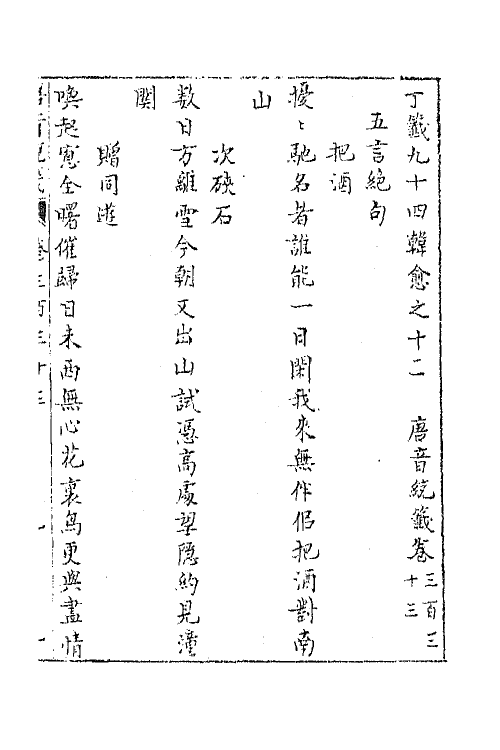 丁籤九十四韓愈之十二　唐音統籤卷三百三十三
五言絕句
把酒
擾〻馳名者誰能一日閑我來無伴侶把酒對南
山
次硤石
数日方離雪今朝又出山試憑高處望隠約見潼
関
贈同遊
喚起窻全曙催歸日未西無心花裏鳥更與盡情